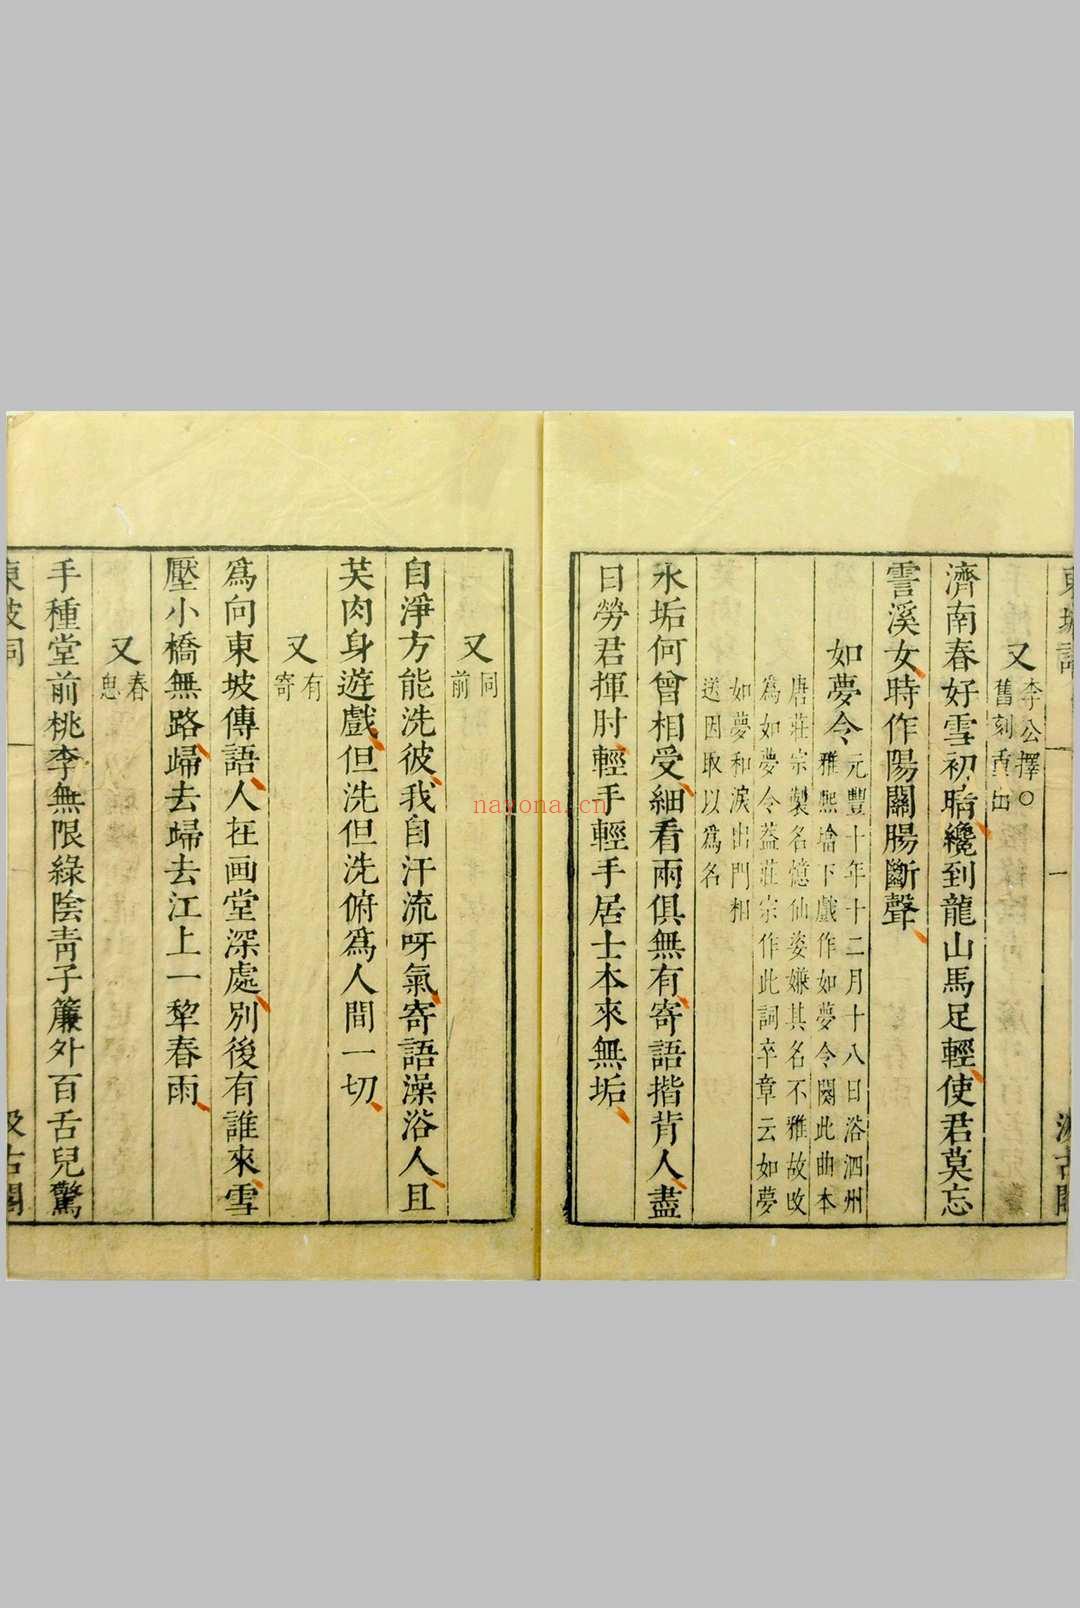 東坡詞 一 汲古閣
又 李公擇○
舊刻重出
濟南春好雪初晴纔到龍山馬足輕使君莫忘
霅溪女時作陽關腸斷聲
如夢令 元豐十年十二月十八日浴泗州
雅熙墖下戲作如夢令闋此曲本
唐莊宗製名憶仙姿嫌其名不雅故改
爲如夢令葢莊宗作此詞卒章云如夢
如夢和淚出門相
送因取以爲名
水垢何曾相受細看兩俱無有寄語揩背人盡
日勞君揮肘輕手輕手居士本來無垢
又 同
前
自淨方能洗彼我自汗流呀氣寄語澡浴人且
共肉身遊戲但洗但洗俯爲人間一切
又 有
寄
爲向東坡傳語人在画堂深處別後有誰來雪
壓小橋無路歸去歸去江上一犂春雨
又 春
思
手種堂前桃李無限綠陰青子簾外百舌兒驚
東坡詞 汲古閣
nayona.cn